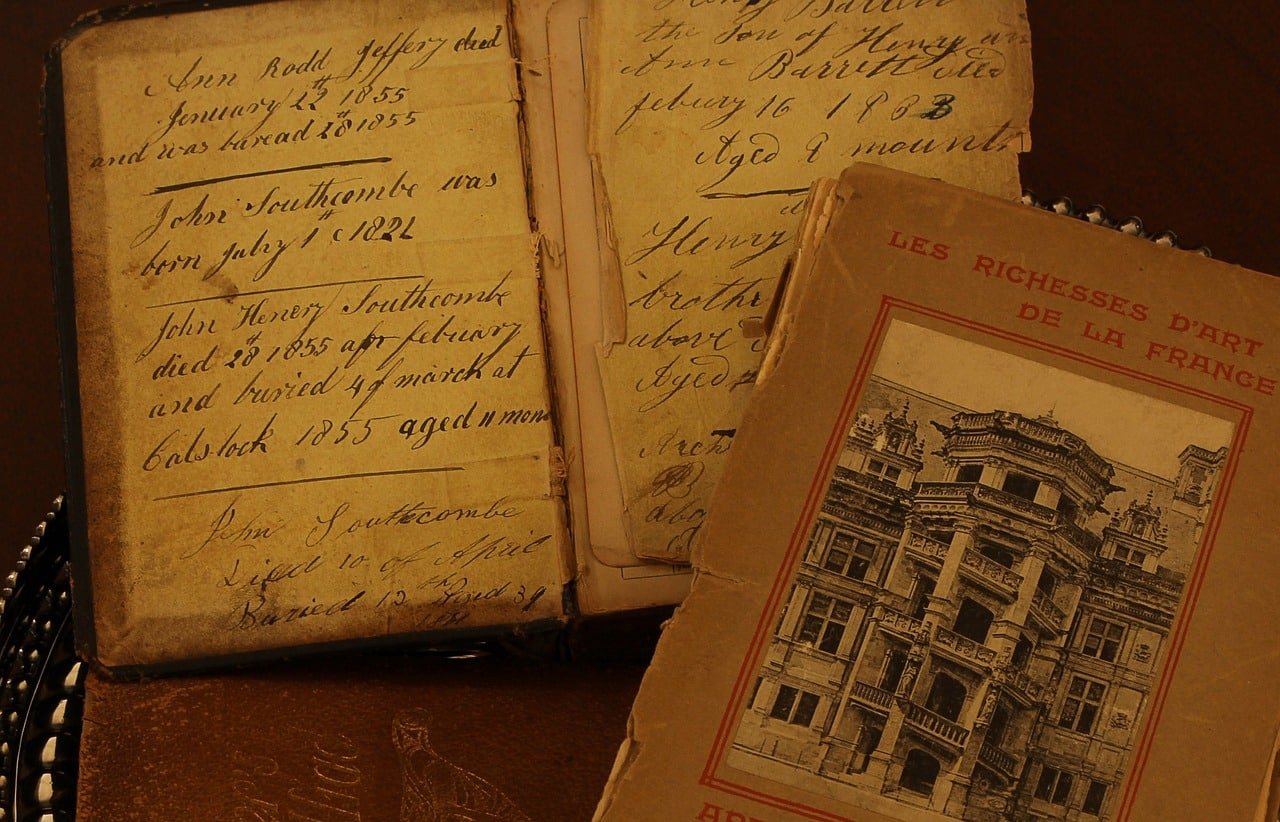 Ann Rodd Jeffery died
Jenuary 22th 1855
and was buread 28th 1855
John Southcombe was
born July 1th 1821
John Henery Southcombe
died 28th 1855 febuary
and buried 4 of march at
Calstock 1855 aged 11 mon
John Southcombe
Died 10 of April
Buried 13 Aged 39
Henry Barrett
the Son of Henry an
Ann Barrett died
febury 16 1883
Aged 9 mounts
Henry
brothe
above
Aged
Arch
abo
LES RICHESSES D'ART
DE LA FRANCE